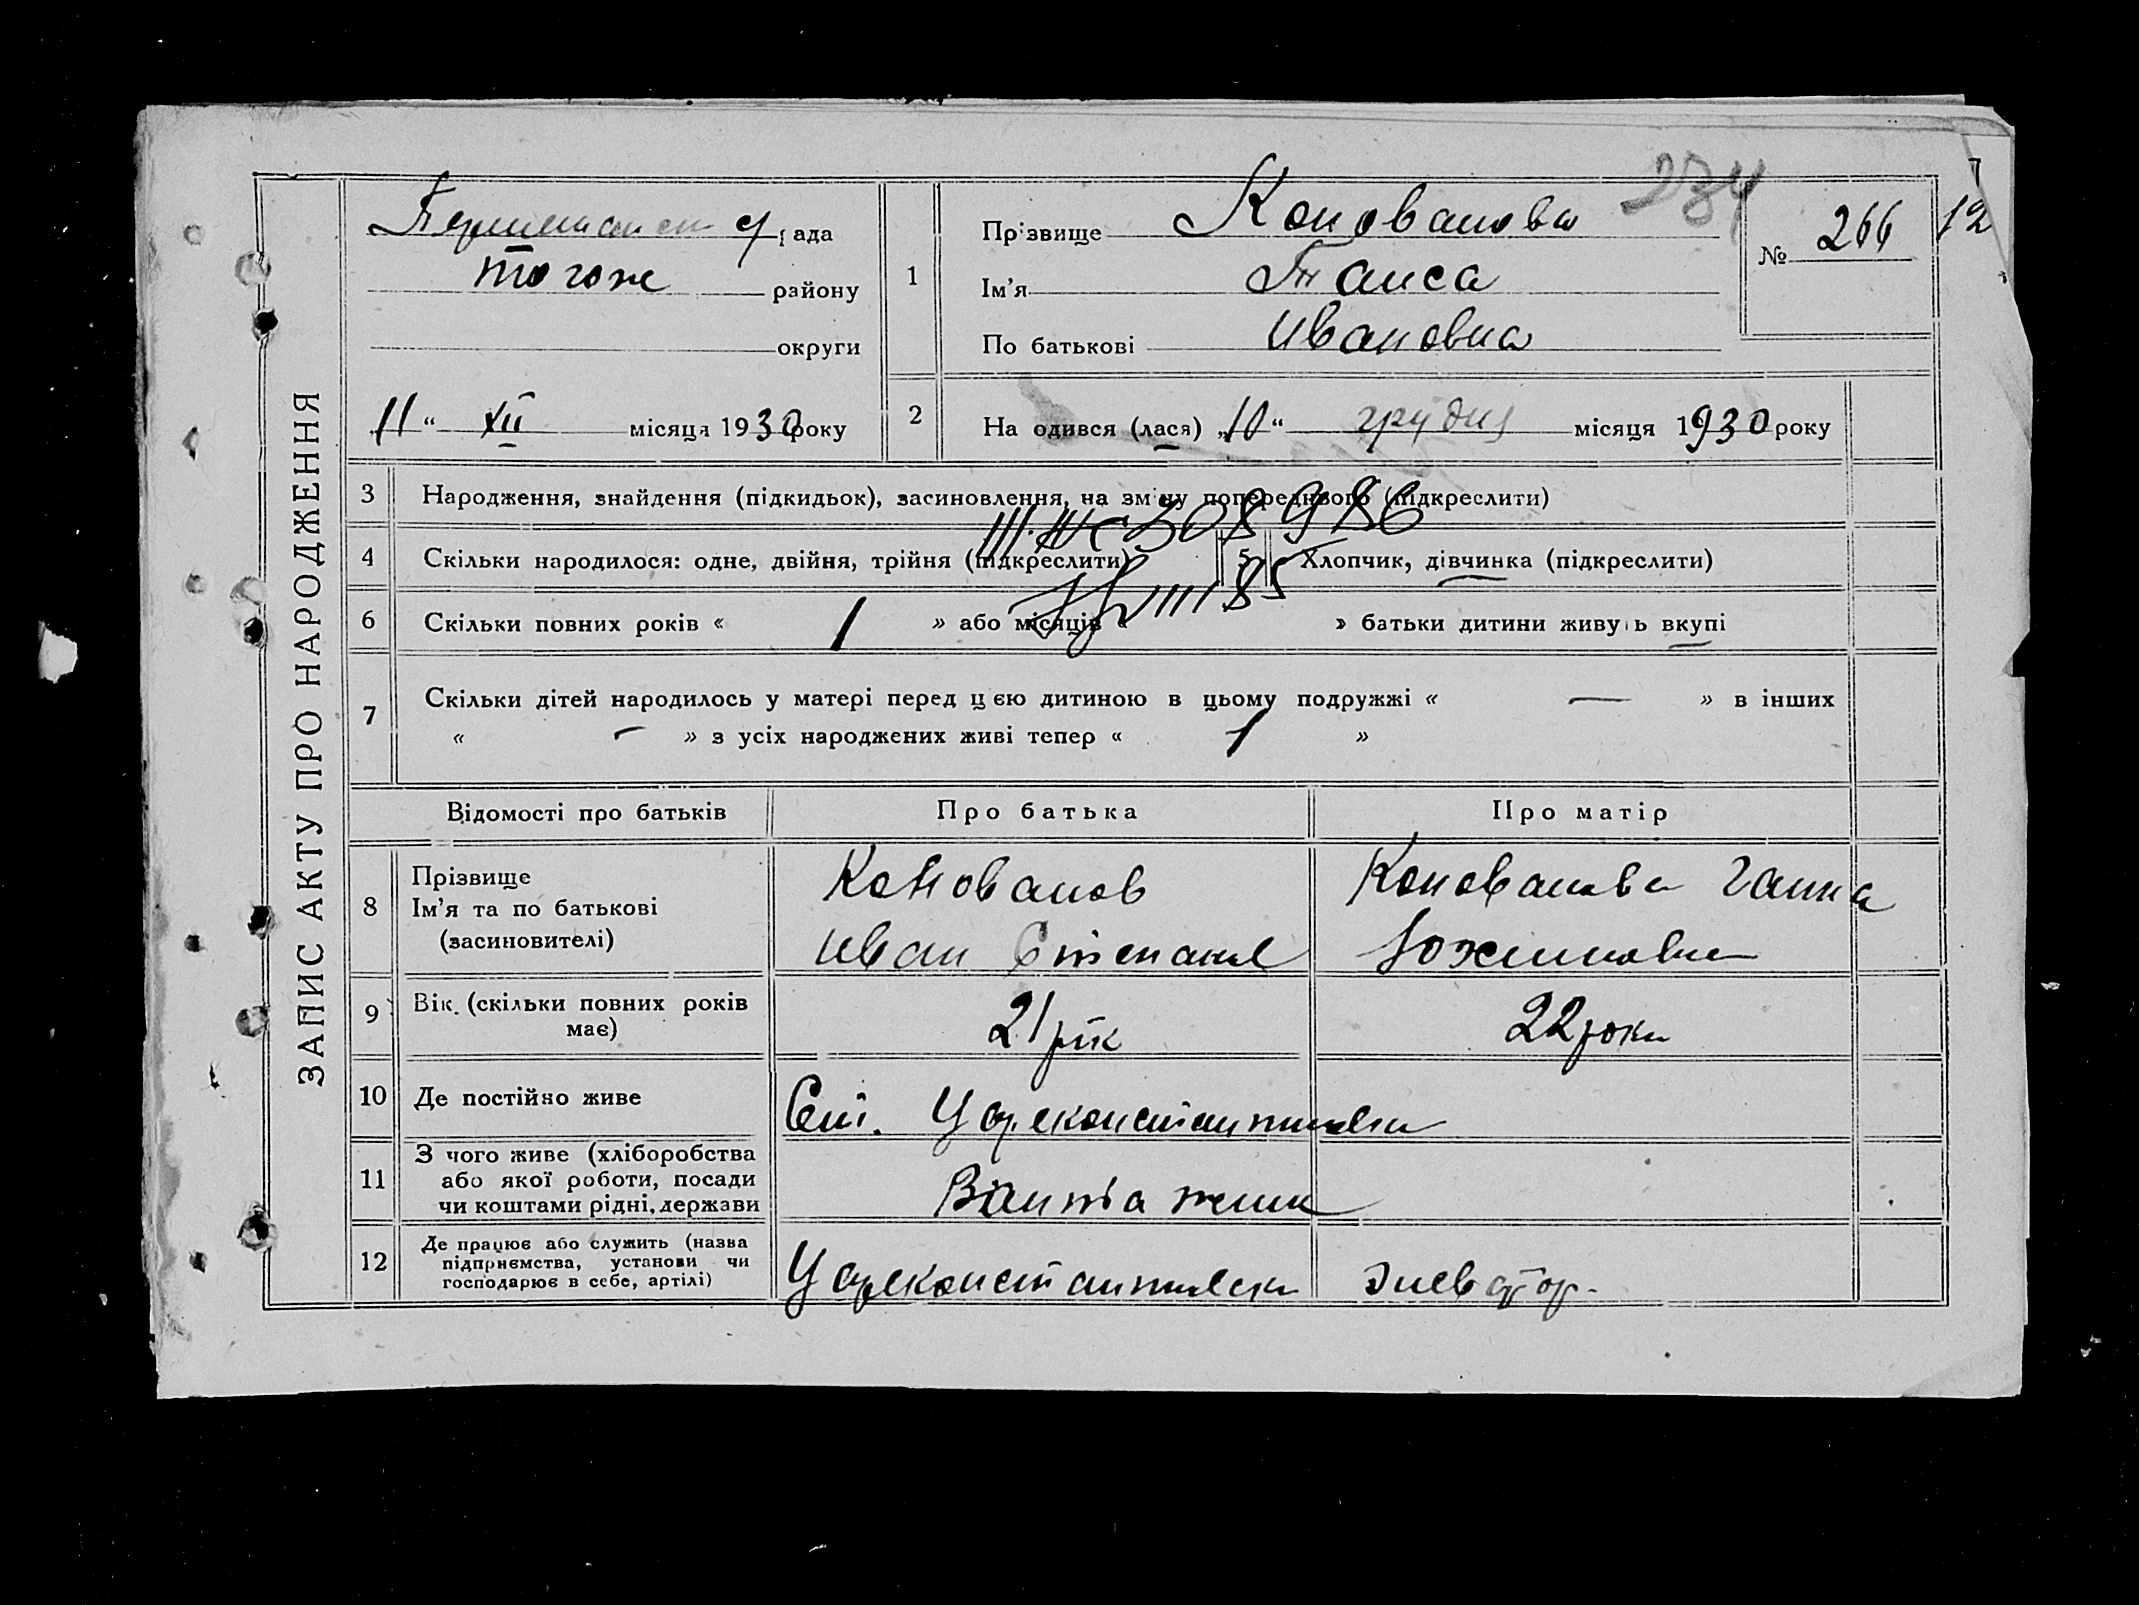 ЗАПИС АКТУ ПРО НАРОДЖЕННЯ
рада
того ж району
округи
11 " XII місяця 1930 року
1
Прізвище Коновалова
Ім'я Таиса
По батькові Ивановна
234
№ 266
12
2 На одився (лася) „10" грудня місяця 1930 року
3 Народження, знайдення (підкидьок), засиновлення, на зміну попереднього (підкреслити)
III ЖС 308986
4 Скільки народилося: одне, двійня, трійня (підкреслити)
5 Хлопчик, дівчинка (підкреслити)
VIII 85
6 Скільки повних років « 1 » або місяців « » батьки дитини живуть вкупі
7 Скільки дітей народилось у матері перед цею дитиною в цьому подружжі « — » в інших
« - » з усіх народжених живі тепер « 1 »
Відомості про батьків
Про батька
Про матір
8 Прізвище
Ім'я та по батькові
(засиновителі)
Коновалов
Иван Степанов
Коновалова Ганна
9 Вік. (скільки повних років
має)
21 рік
22 роки
10 Де постійно живе
Ст. Цареконстантиновка
11 З чого живе (хліборобства
або якої роботи, посади
чи коштами рідні, держави
Вантажник
12 Де працює або служить (назва
підприємства, установи чи
господарює в себе, артілі)
Цареконстантиновск Элеватор.